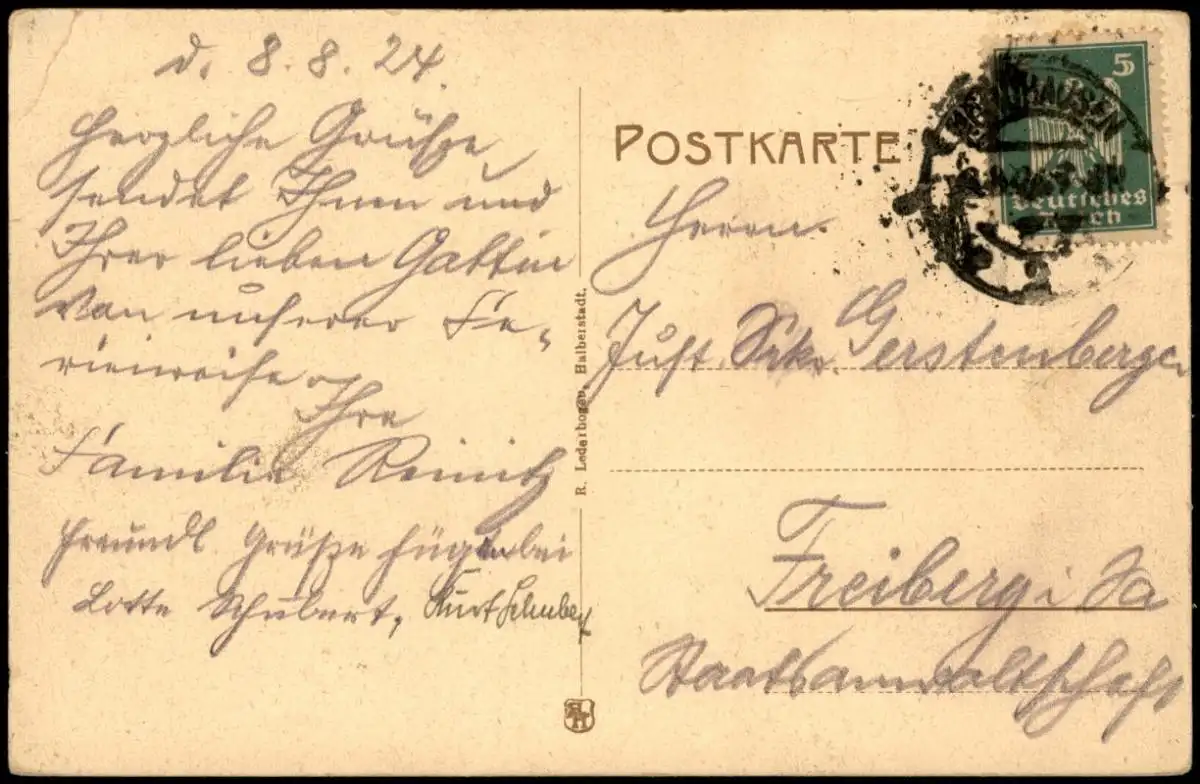 d. 8. 8. 24.
Herzliche Grüße
sendet Ihnen und
Ihrer lieben Gattin
von unserer Fe-
rienreise
Ihre
Familie Reinitz
Freundl. Grüße fügen bei
Lotte Schubert, Kurt Schubert
R. Lederbogen, Halberstadt.
POSTKARTE
5
Deutsches
Reich
Herrn
Just. Sekr. Gerstenberger
Freiberg i Sa
Staatsanwaltschaft